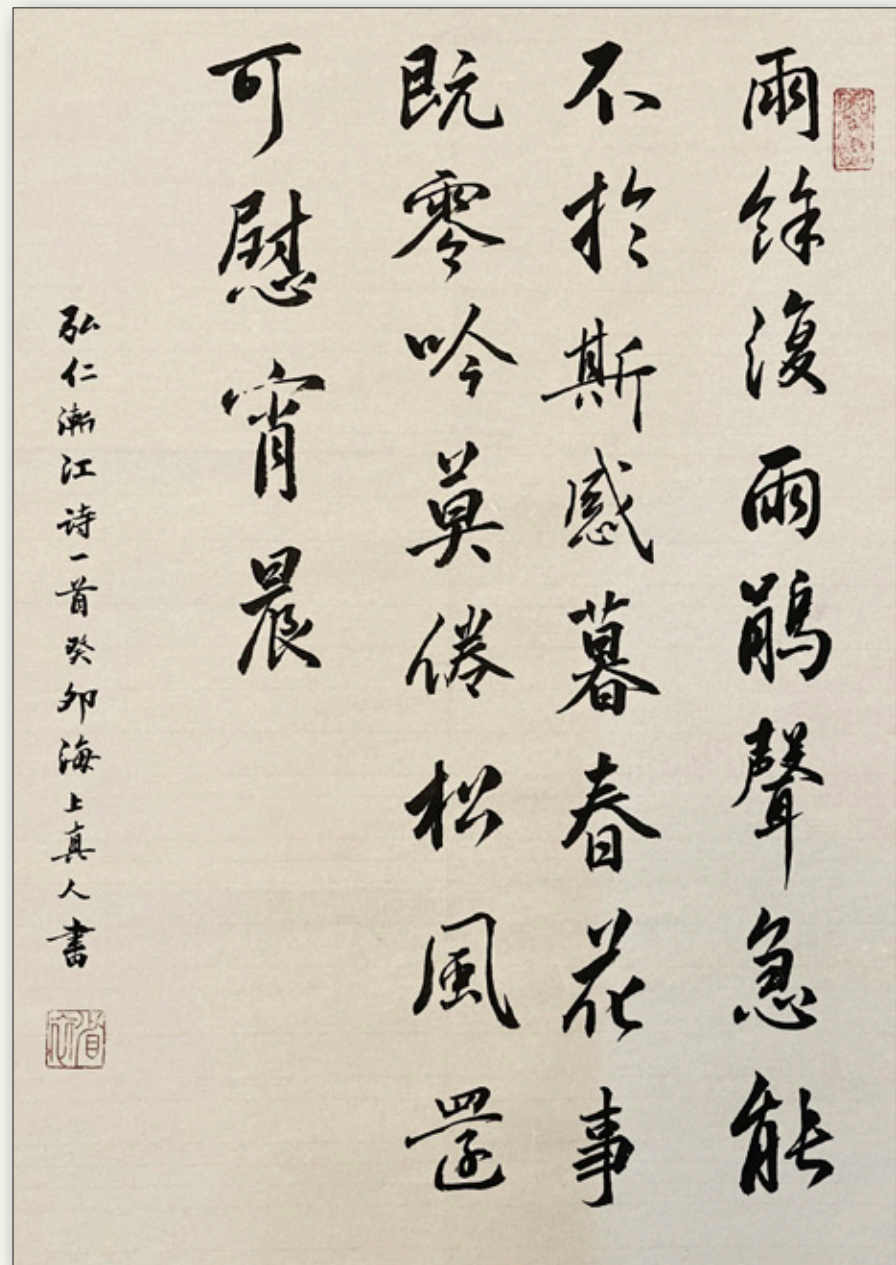 雨餘復雨鵑聲急能
不於斯感暮春花事
既零吟莫倦松風還
可慰宵晨
弘仁漸江詩一首癸卯海上真人書